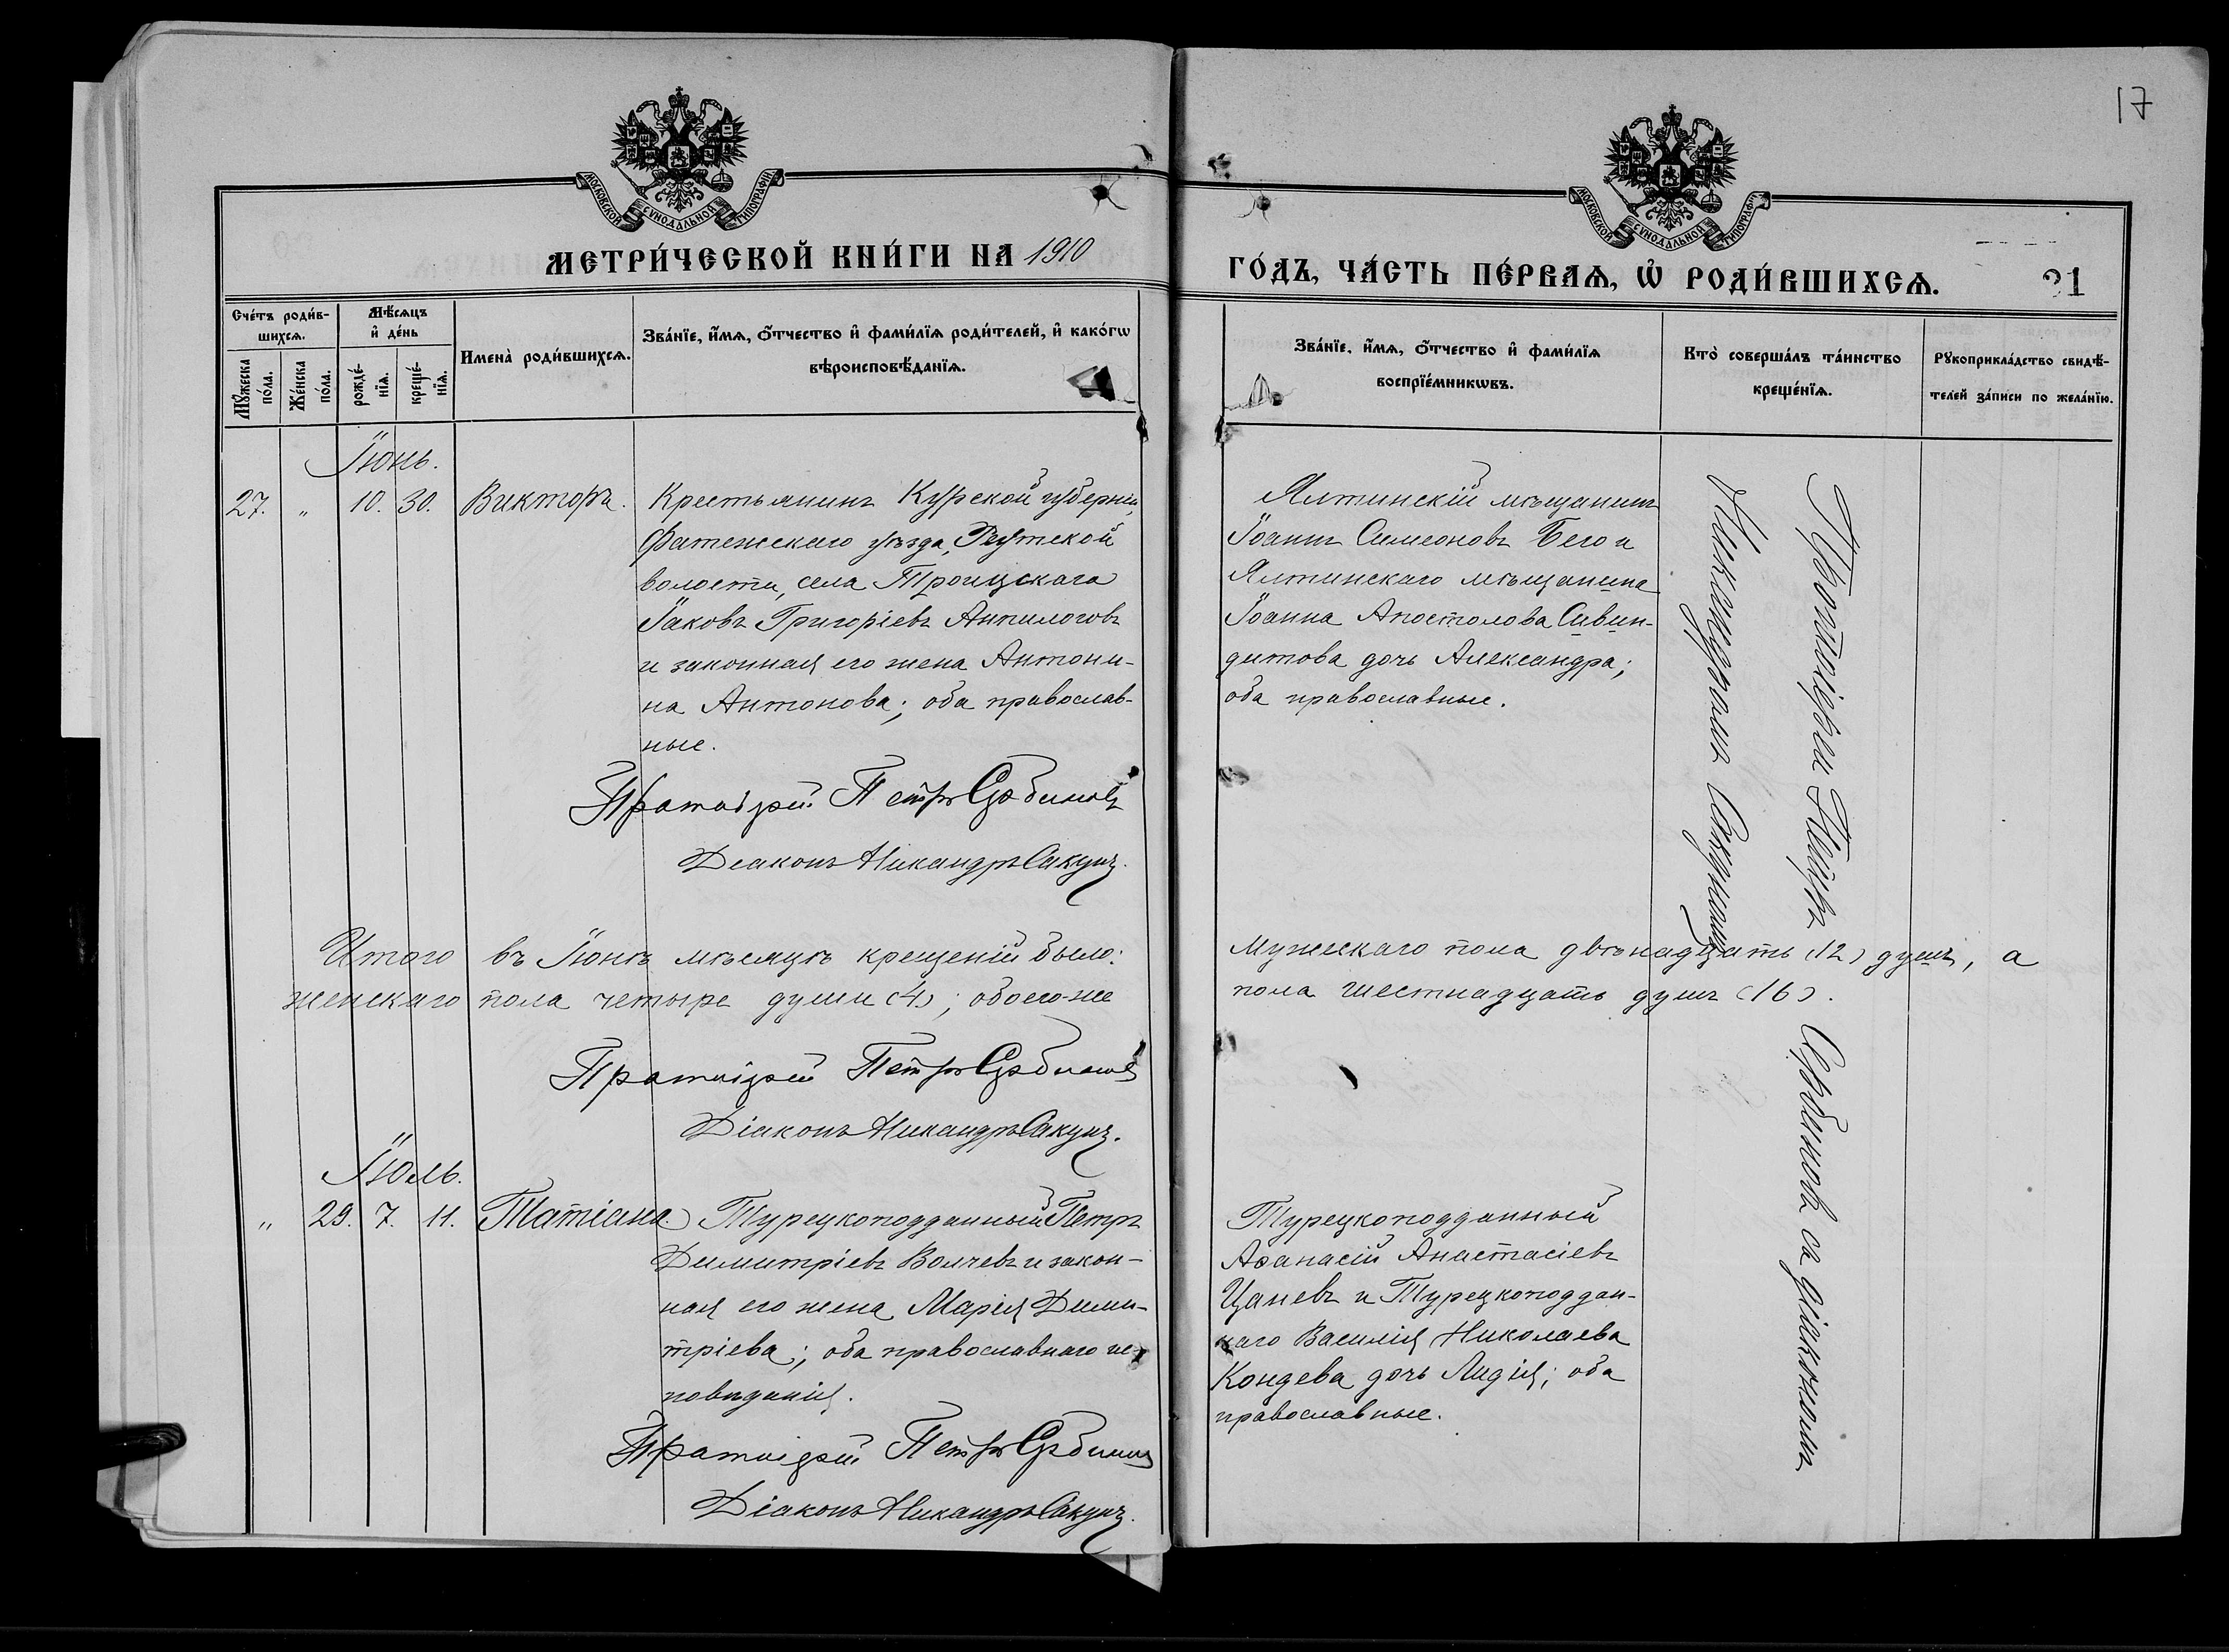 17
МОСКОВСКОЙ СУНОДАЛЬНОЙ ТИПОГРАФІИ
МОСКОВСКОЙ СУНОДАЛЬНОЙ ТИПОГРАФІИ
МЕТРИ́ЧЕСКОЙ КНИ́ГИ НА 1910
ГО́ДЪ, ЧА́СТЬ ПЕ́РВАѦ, Ѽ РОДИ́ВШИХСѦ.
21
Сче́тъ роди́в-
шихсѧ.
Мꙋ́жеска
по́ла.
Же́нска
по́ла.
Мѣ́сѧцъ
и҆ де́нь
рожде́-
нїѧ.
креще́-
нїѧ.
Имена̀ роди́вшихсѧ.
Зва́нїе, и҆́мѧ, ѻ҆́тчество и҆ фами́лїѧ роди́телей, и҆ како́гѡ
вѣроисповѣ́данїѧ.
Зва́нїе, и҆́мѧ, ѻ҆́тчество и҆ фами́лїѧ
воспрїе́мникѡвъ.
Кто̀ соверша́лъ та́инство
креще́нїѧ.
Рꙋкоприкла́дство свидѣ́-
телей за́писи по жела́нїю.
Іюнь.
27. " 10. 30. Викторъ.
Крестьянинъ Курской губерніи,
Фатежскаго уѣзда,
волости, села Троицскаго
Іаковъ Григоріевъ Анпилоговъ
и законная его жена Антони-
на Антонова; оба православ-
ные.
Протоіерей Петръ Сербиновъ
Діаконъ Никандръ Сакунъ.
Ялтинскій мѣщанинъ
Іоаннъ Симеоновъ Бего и
Ялтинскаго мѣщанина
Іоанна Апостолова Сивин-
дитова дочь Александра;
оба православные.
Протоіерей Петръ Сербиновъ съ діакономъ
Никандромъ Сакуномъ
Итого въ Іюнѣ мѣсяцѣ крещеній было: мужескаго пола двѣнадцать (12) душъ, а
женскаго пола четыре души (4); обоего-же пола шестнадцать душъ (16).
Протоіерей Петръ Сербиновъ
Діаконъ Никандръ Сакунъ.
Іюль.
" 29. 7. 11. Татіана.
Турецкоподданный Петръ
Димитріевъ Волчевъ и закон-
ная его жена Марія Дими-
тріева; оба православнаго ис-
повѣданія.
Протоіерей Петръ Сербиновъ
Діаконъ Никандръ Сакунъ.
Турецкоподданный
Аѳанасій Анастасіевъ
Цаневъ и Турецкоподдан-
наго Василія Николаева
Кондева дочь Лидія; оба
православные.